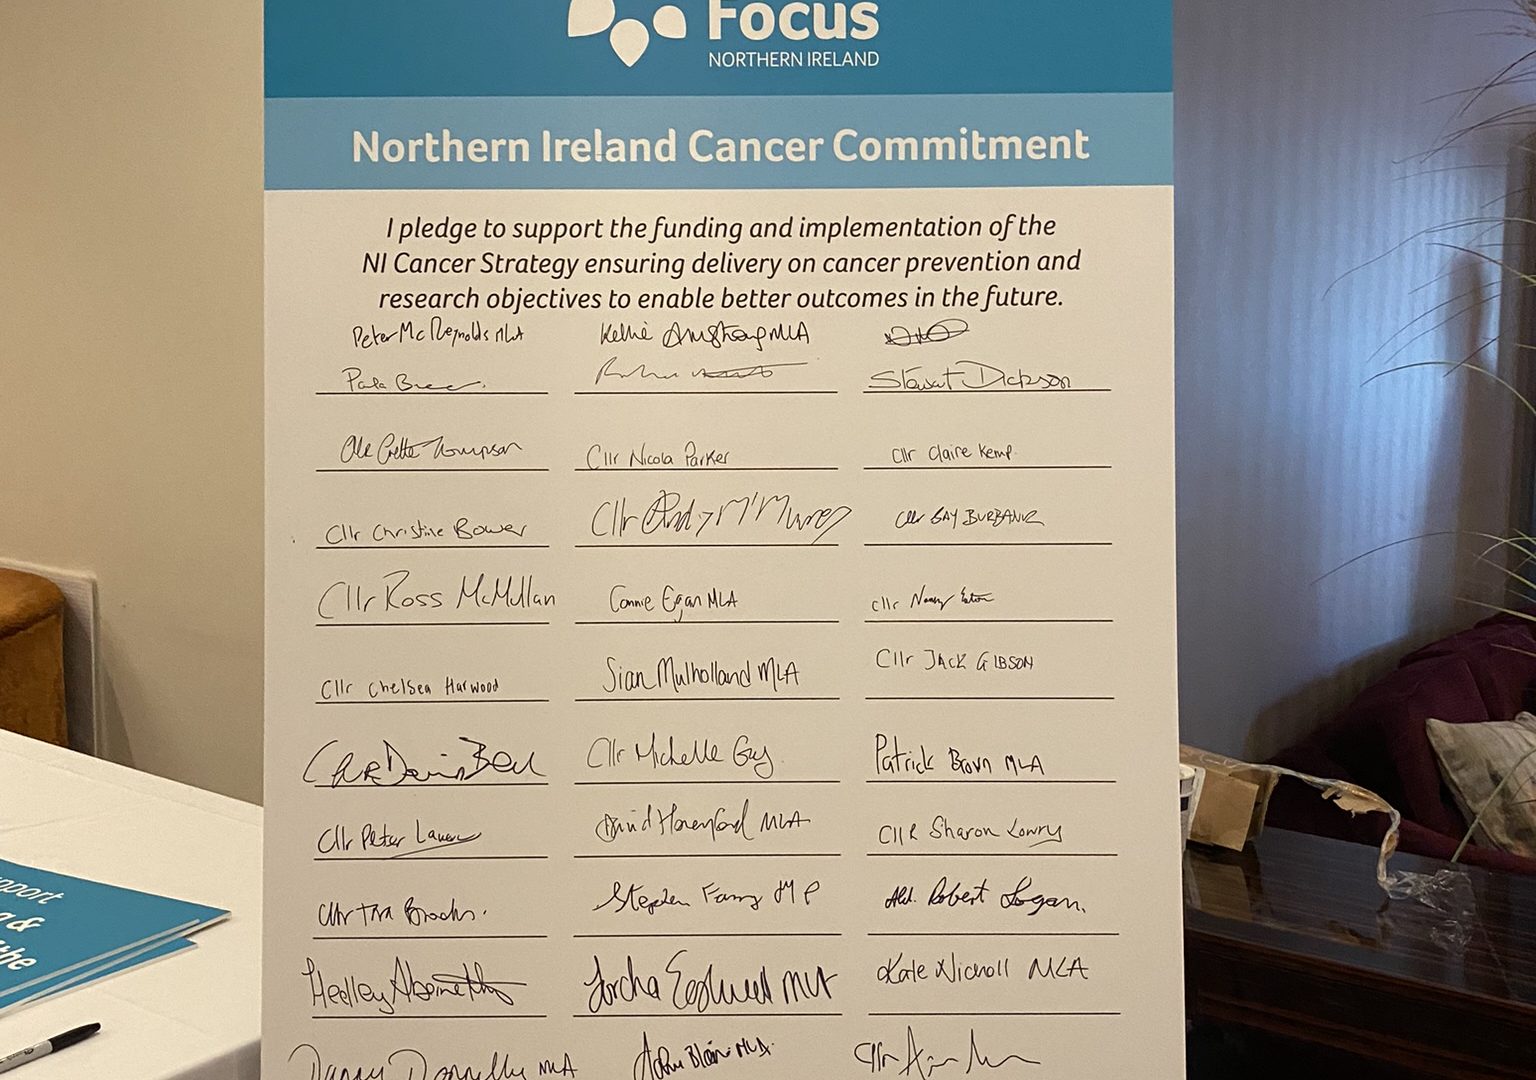 Focus
NORTHERN IRELAND
Northern Ireland Cancer Commitment
I pledge to support the funding and implementation of the
NI Cancer Strategy ensuring delivery on cancer prevention and
research objectives to enable better outcomes in the future.
Peter McReynolds MLA Kellie Armstrong MLA
Stewart Dickson
Thompson Cllr Nicola Parker Cllr Claire Kemp
Cllr Christine Bower Cllr Cllr GAY BURBANK
Cllr Ross McMullan Connie Egan MLA Cllr Nancy Eaton
Cllr Chelsea Harwood Sian Mulholland MLA Cllr JACK GIBSON
Cllr Michelle Guy Patrick Brown MLA
Cllr Peter David Honeyford MLA Cllr Sharon Lowry
Stephen Farry MP Ald. Robert Logan.
Hedley Abernethy Sorcha Eastwood MLA Kate Nicholl MLA
Danny Donnelly MLA John Blair MLA Cllr
&
the